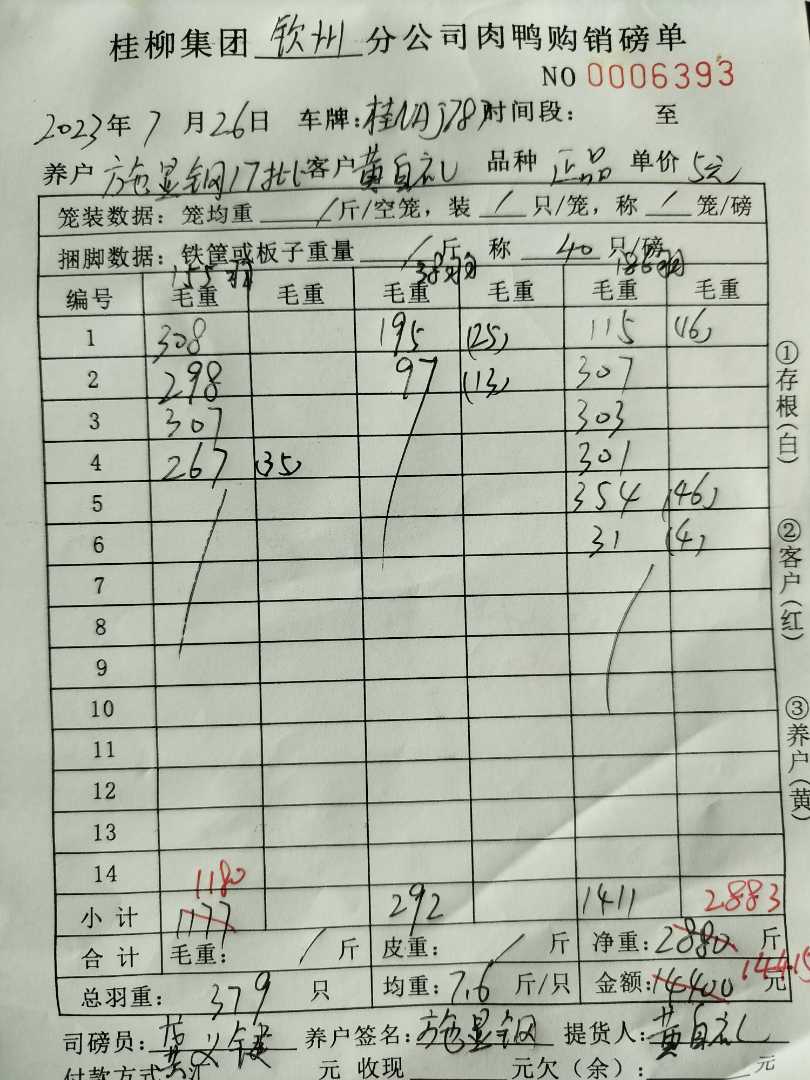 桂柳集团 钦州 分公司肉鸭购销磅单
NO 0006393
2023年 7 月 26日 车牌:桂NAJ787 时间段: 至
养户 施显钢17批 客户 黄自礼 品种 正品 单价 5元
笼装数据: 笼均重 / 斤/空笼, 装 / 只/笼, 称 / 笼/磅
捆脚数据: 铁筐或板子重量 / 斤 称 40 只/磅
155羽 38羽 186羽
编号 毛重 毛重 毛重 毛重 毛重 毛重
1 308 195 (25) 115 (16)
2 298 97 (13) 307
3 307 303
4 267 (35) 301
5 354 (46)
6 31 (4)
7
8
9
10
11
12
13
14
1180
小计 1177 292 1411 2883
合计 毛重: / 斤 皮重: / 斤 净重: 2880 斤
14415
总羽重: 379 只 均重: 7.6 斤/只 金额: 14400 元
司磅员: 养户签名: 施显钢 提货人: 黄自礼
付款方式 汇 元 收现 元欠(余): 元
①存根(白)
②客户(红)
③养户(黄)